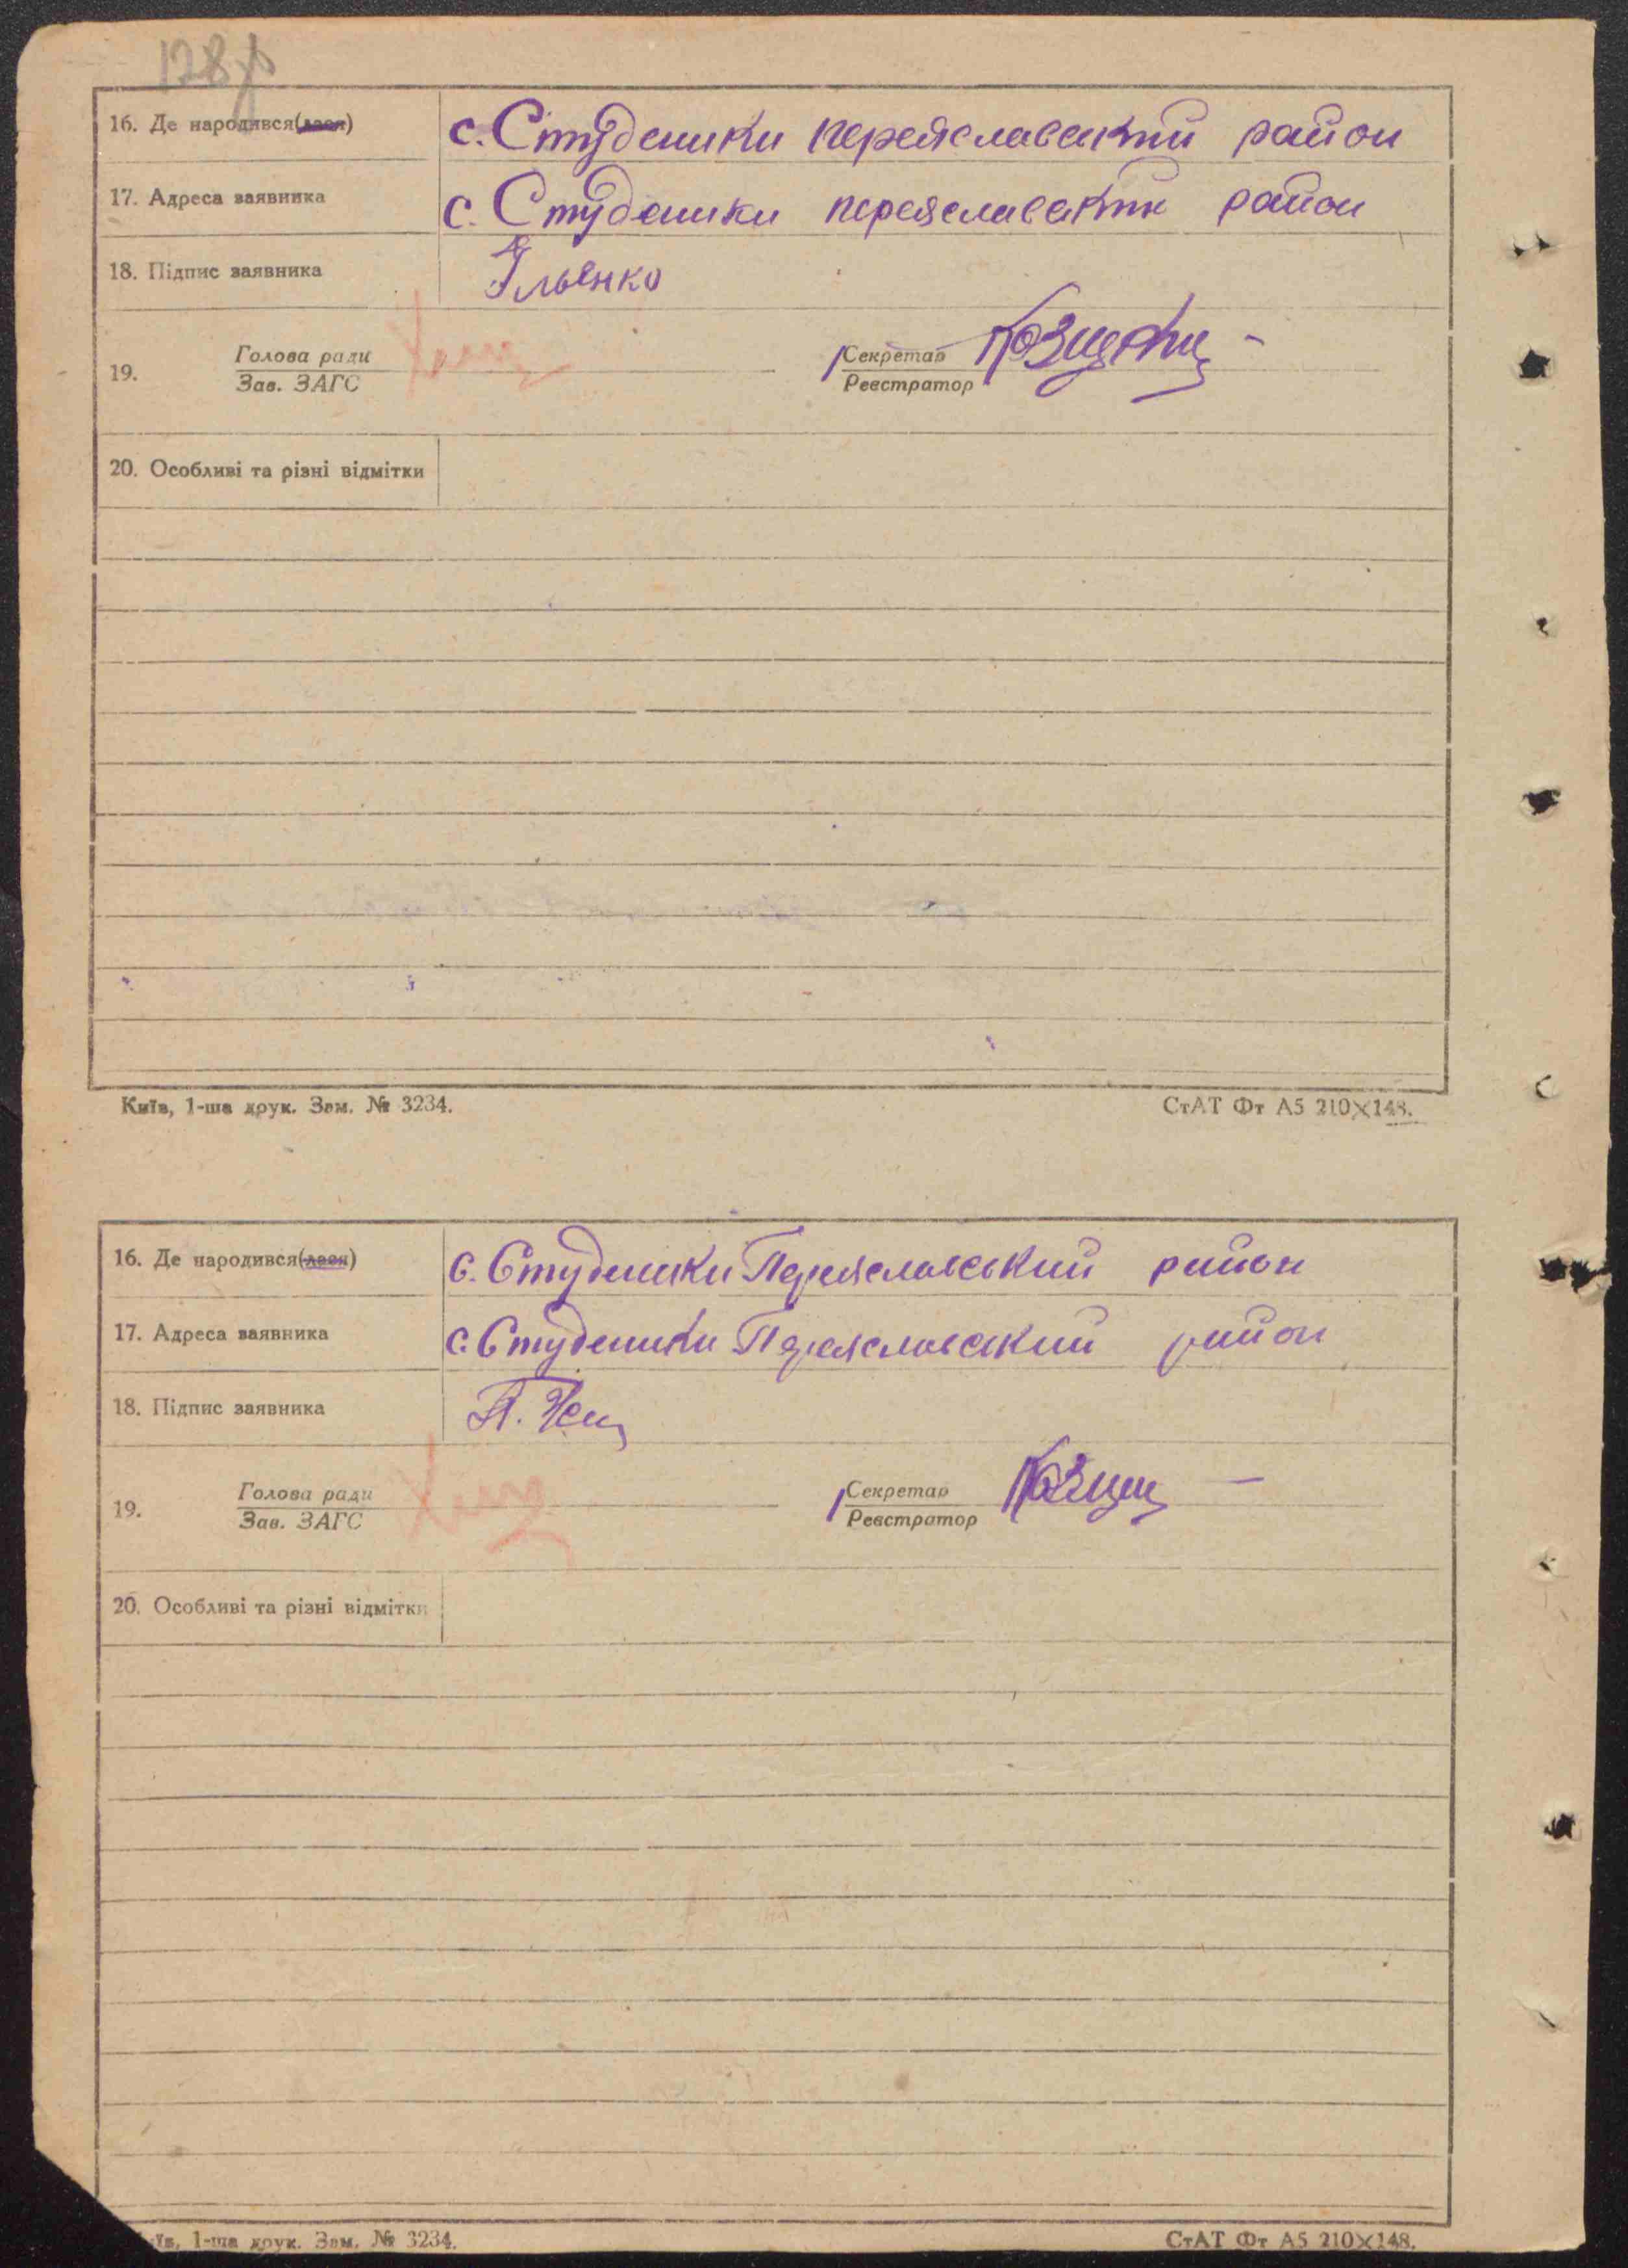 128
16. Де народився(лася) с. Студеники переяславський район
17. Адреса заявника с. Студеники переяславский район
18. Підпис заявника Ільенко
19. Голова ради Секретар
Зав. ЗАГС Реєстратор
20. Особливі та різні відмітки
Київ, 1-ша друк. Зам. № 3234. СтАТ Фт А5 210×148.
16. Де народився(лася) с. Студеники Переяславський район
17. Адреса заявника с. Студеники Переяславский район
18. Підпис заявника
19. Голова ради Секретар
Зав. ЗАГС Реєстратор
20. Особливі та різні відмітки
їв, 1-ша друк. Зам. № 3234. СтАТ Фт А5 210×148.